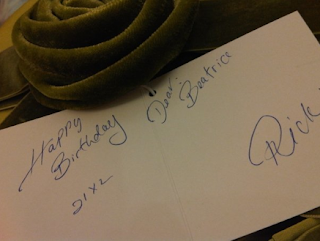 Happy
Birthday
21x2
Dear.
Beatrice
Rick.